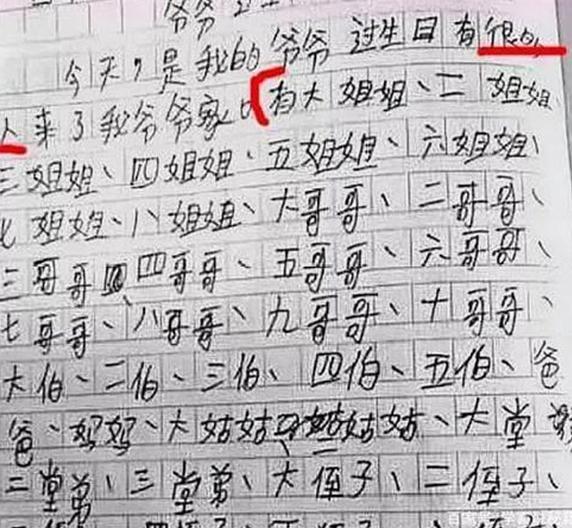 爷爷过生
今天,是我的爷爷过生日有很多
人来了我爷爷家。有大姐姐、二姐姐
三姐姐、四姐姐、五姐姐、六姐姐、
七姐姐、八姐姐、大哥哥、二哥哥、
三哥哥、四哥哥、五哥哥、六哥哥、
七哥哥、八哥哥、九哥哥、十哥哥、
大伯、二伯、三伯、四伯、五伯、爸
爸、妈妈、大姑姑、二姑姑、大堂
二堂弟、三堂弟、大侄子、二侄子、